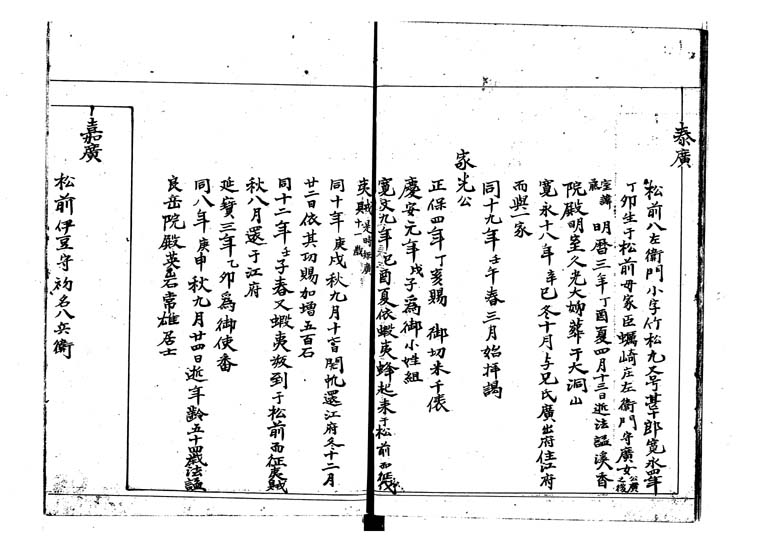 泰廣
松前八左衛門小字竹松丸又号甚十郎寛永四年
丁卯生于松前母家臣蠣崎庄左衛門守廣女公廣之後
室諱 明暦三年丁酉夏四月十三日逝法諡溪香
院殿明室久光大姉葬于大洞山
寛永十八年辛巳冬十月与兄氏廣出府住江府
而與一家
同十九年壬午春三月始拝謁
家光公
正保四年丁亥賜 御切米千俵
慶安元年戊子為御小姓組
寛文九年己酉夏依蝦夷蜂起来于松前而征伐
夷賊是時矩廣十一歳
同十年庚戌秋九月十二日開帆還江府冬十二月
廿二日依其功賜加増五百石
同十二年壬子春又蝦夷發到于松前而征夷賊
秋八月還于江府
延寶三年乙卯為御使番
同八年庚申秋九月廿四日逝年齢五十四歳法諡
良岳院殿英岩常雄居士
嘉廣
松前伊豆守初名八兵衛